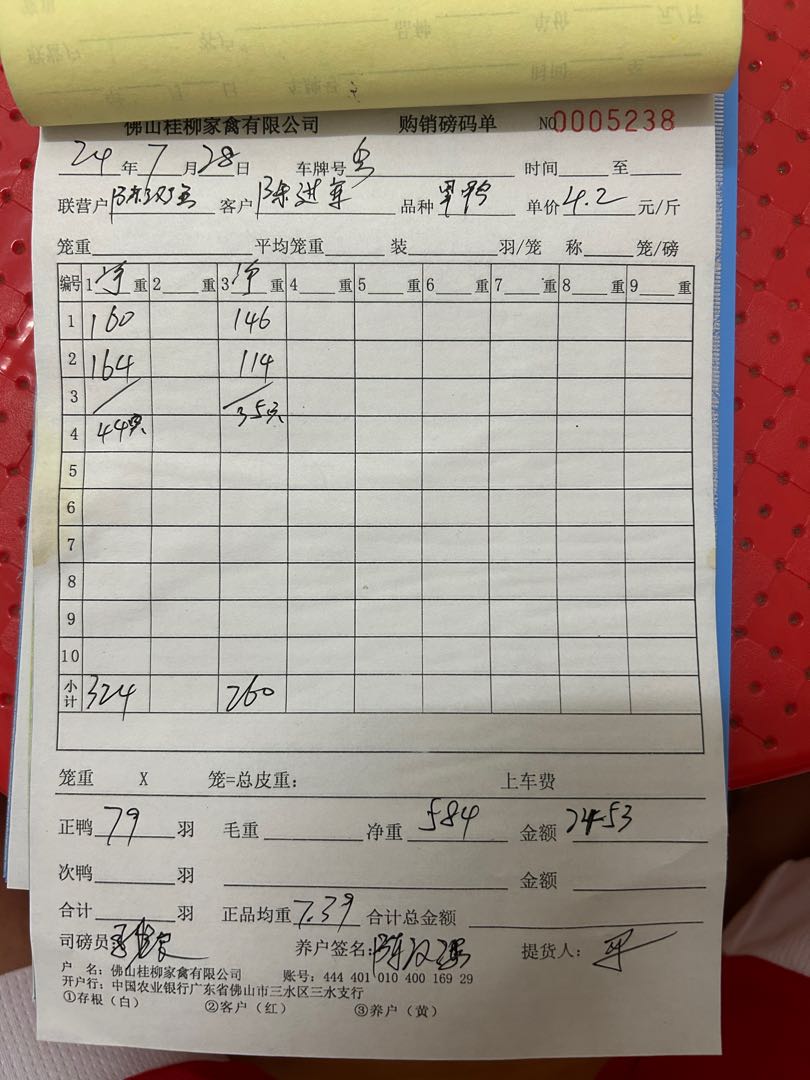 佛山桂柳家禽有限公司 购销磅码单 NO0005238
24年7月28日 车牌号 时间 至
联营户 陈汉强 客户 陈进军 品种 单价4.2元/斤
笼重 平均笼重 装 羽/笼 称 笼/磅
编号 1净重 2 重 3净重 4 重 5 重 6 重 7 重 8 重 9 重
1 160 146
2 164 114
3
4 44只 35只
5
6
7
8
9
10
小计 324 260
笼重 X 笼=总皮重： 上车费
正鸭 79 羽 毛重 净重 584 金额 2453
次鸭 羽 金额
合计 羽 正品均重 7.39 合计总金额
司磅员 养户签名：陈汉强 提货人：
户 名：佛山桂柳家禽有限公司 账号：444 401 010 400 169 29
开户行：中国农业银行广东省佛山市三水区三水支行
①存根（白） ②客户（红） ③养户（黄）